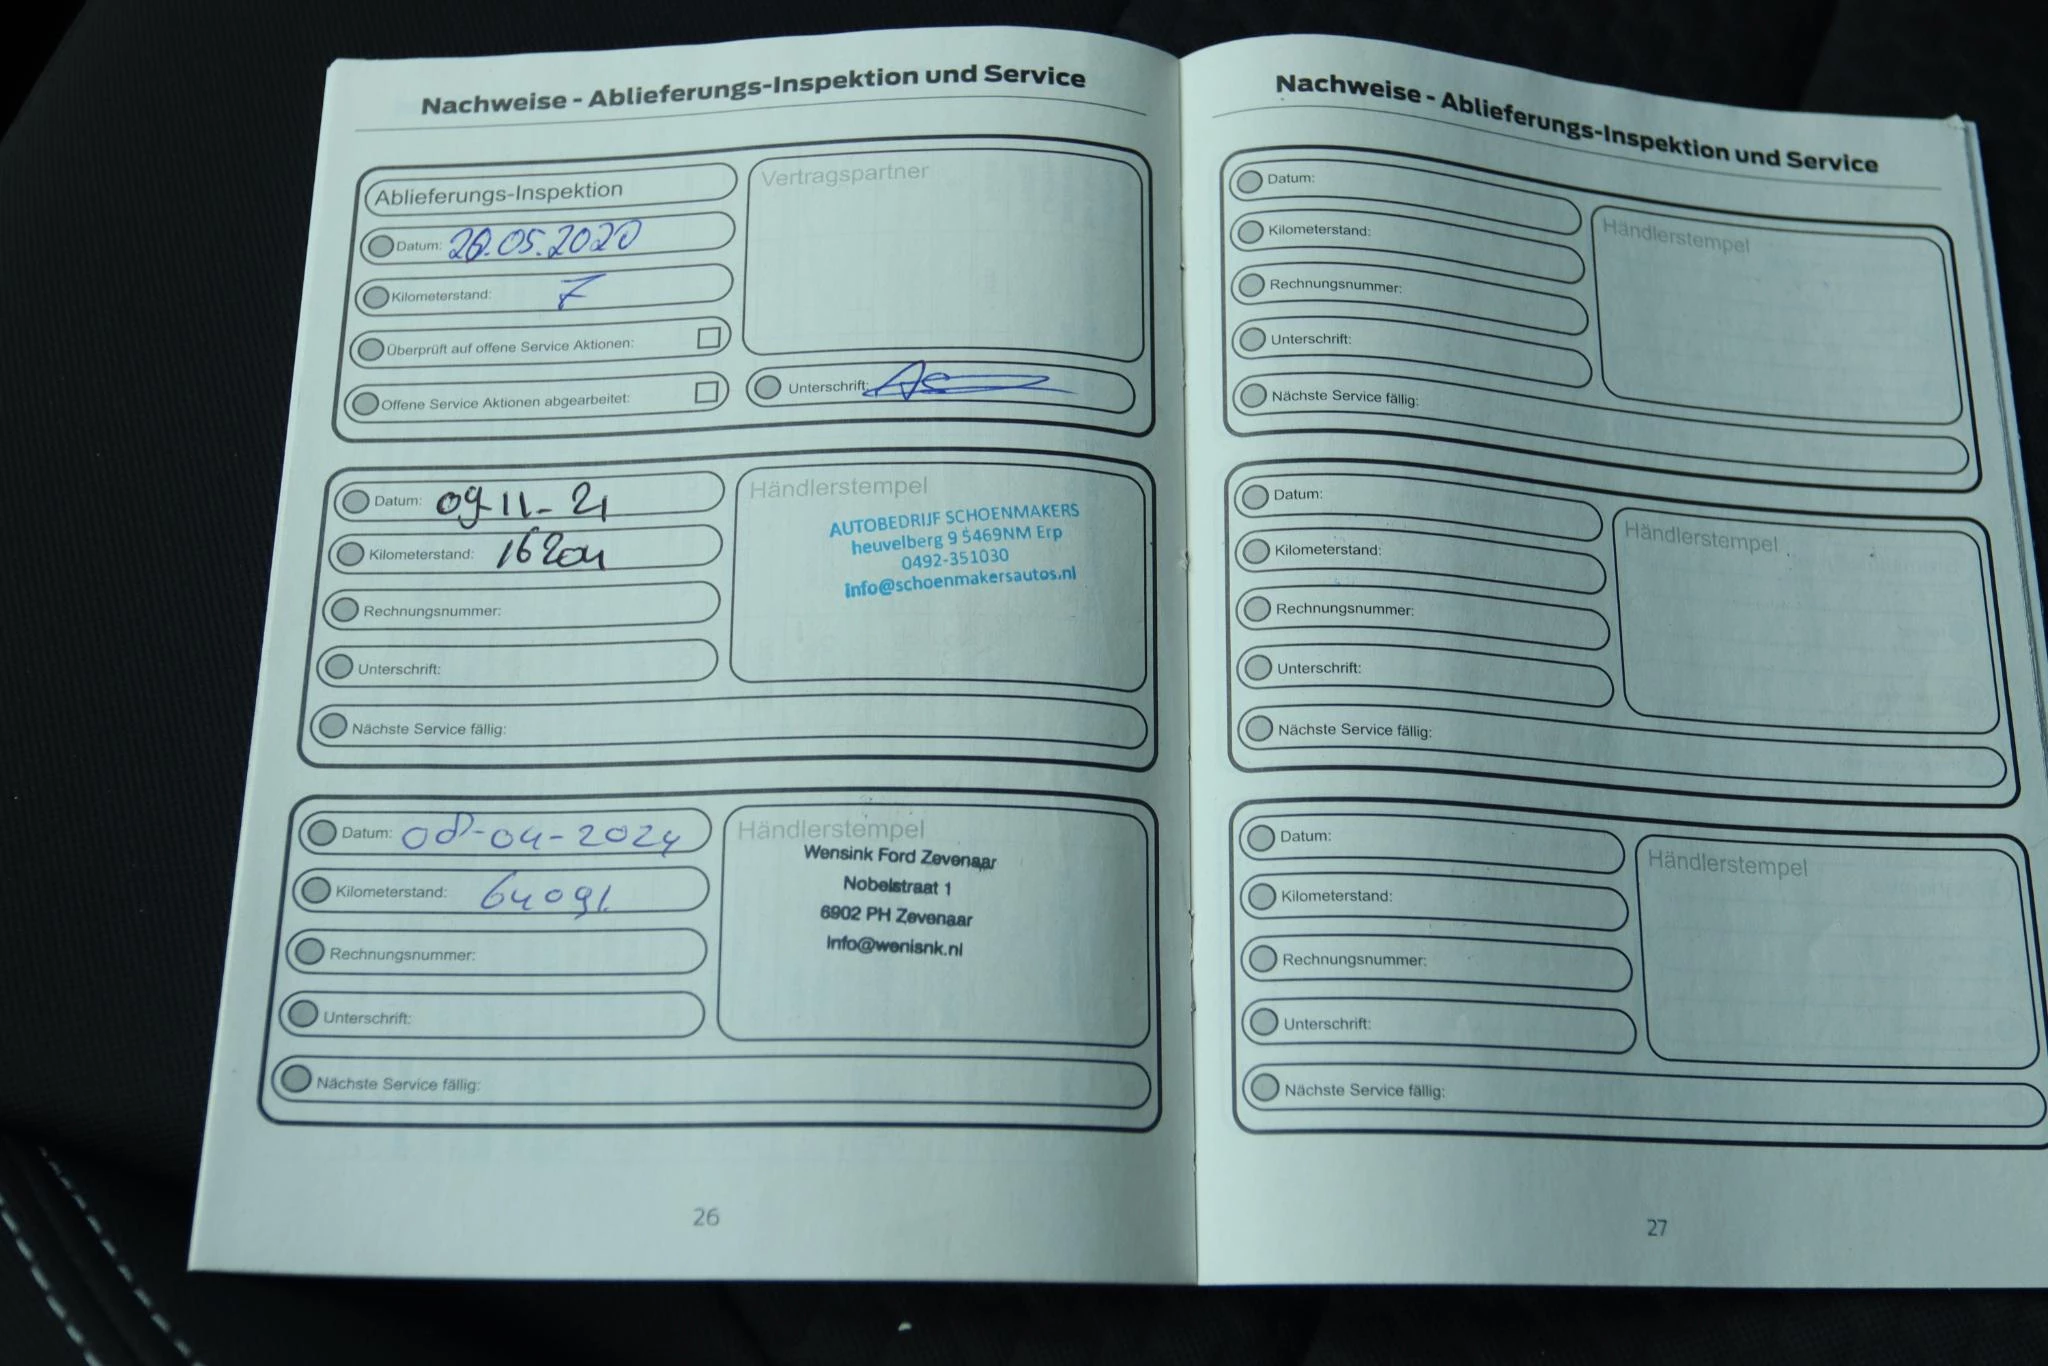 Nachweise - Ablieferungs-Inspektion und Service
Ablieferungs-Inspektion
Datum: 28.05.2020
Kilometerstand: 7
Überprüft auf offene Service Aktionen:
Offene Service Aktionen abgearbeitet:
Vertragspartner
Unterschrift:
Datum: 09-11-21
Kilometerstand: 16204
Rechnungsnummer:
Unterschrift:
Nächste Service fällig:
Händlerstempel
AUTOBEDRIJF SCHOENMAKERS
heuvelberg 9 5469NM Erp
0492-351030
info@schoenmakersautos.nl
Datum: 08-04-2024
Kilometerstand: 64091
Rechnungsnummer:
Unterschrift:
Nächste Service fällig:
Händlerstempel
Wensink Ford Zevenaar
Nobelstraat 1
6902 PH Zevenaar
Info@wenisnk.nl
26
Nachweise - Ablieferungs-Inspektion und Service
Datum:
Kilometerstand:
Rechnungsnummer:
Unterschrift:
Nächste Service fällig:
Händlerstempel
Datum:
Kilometerstand:
Rechnungsnummer:
Unterschrift:
Nächste Service fällig:
Händlerstempel
Datum:
Kilometerstand:
Rechnungsnummer:
Unterschrift:
Nächste Service fällig:
Händlerstempel
27